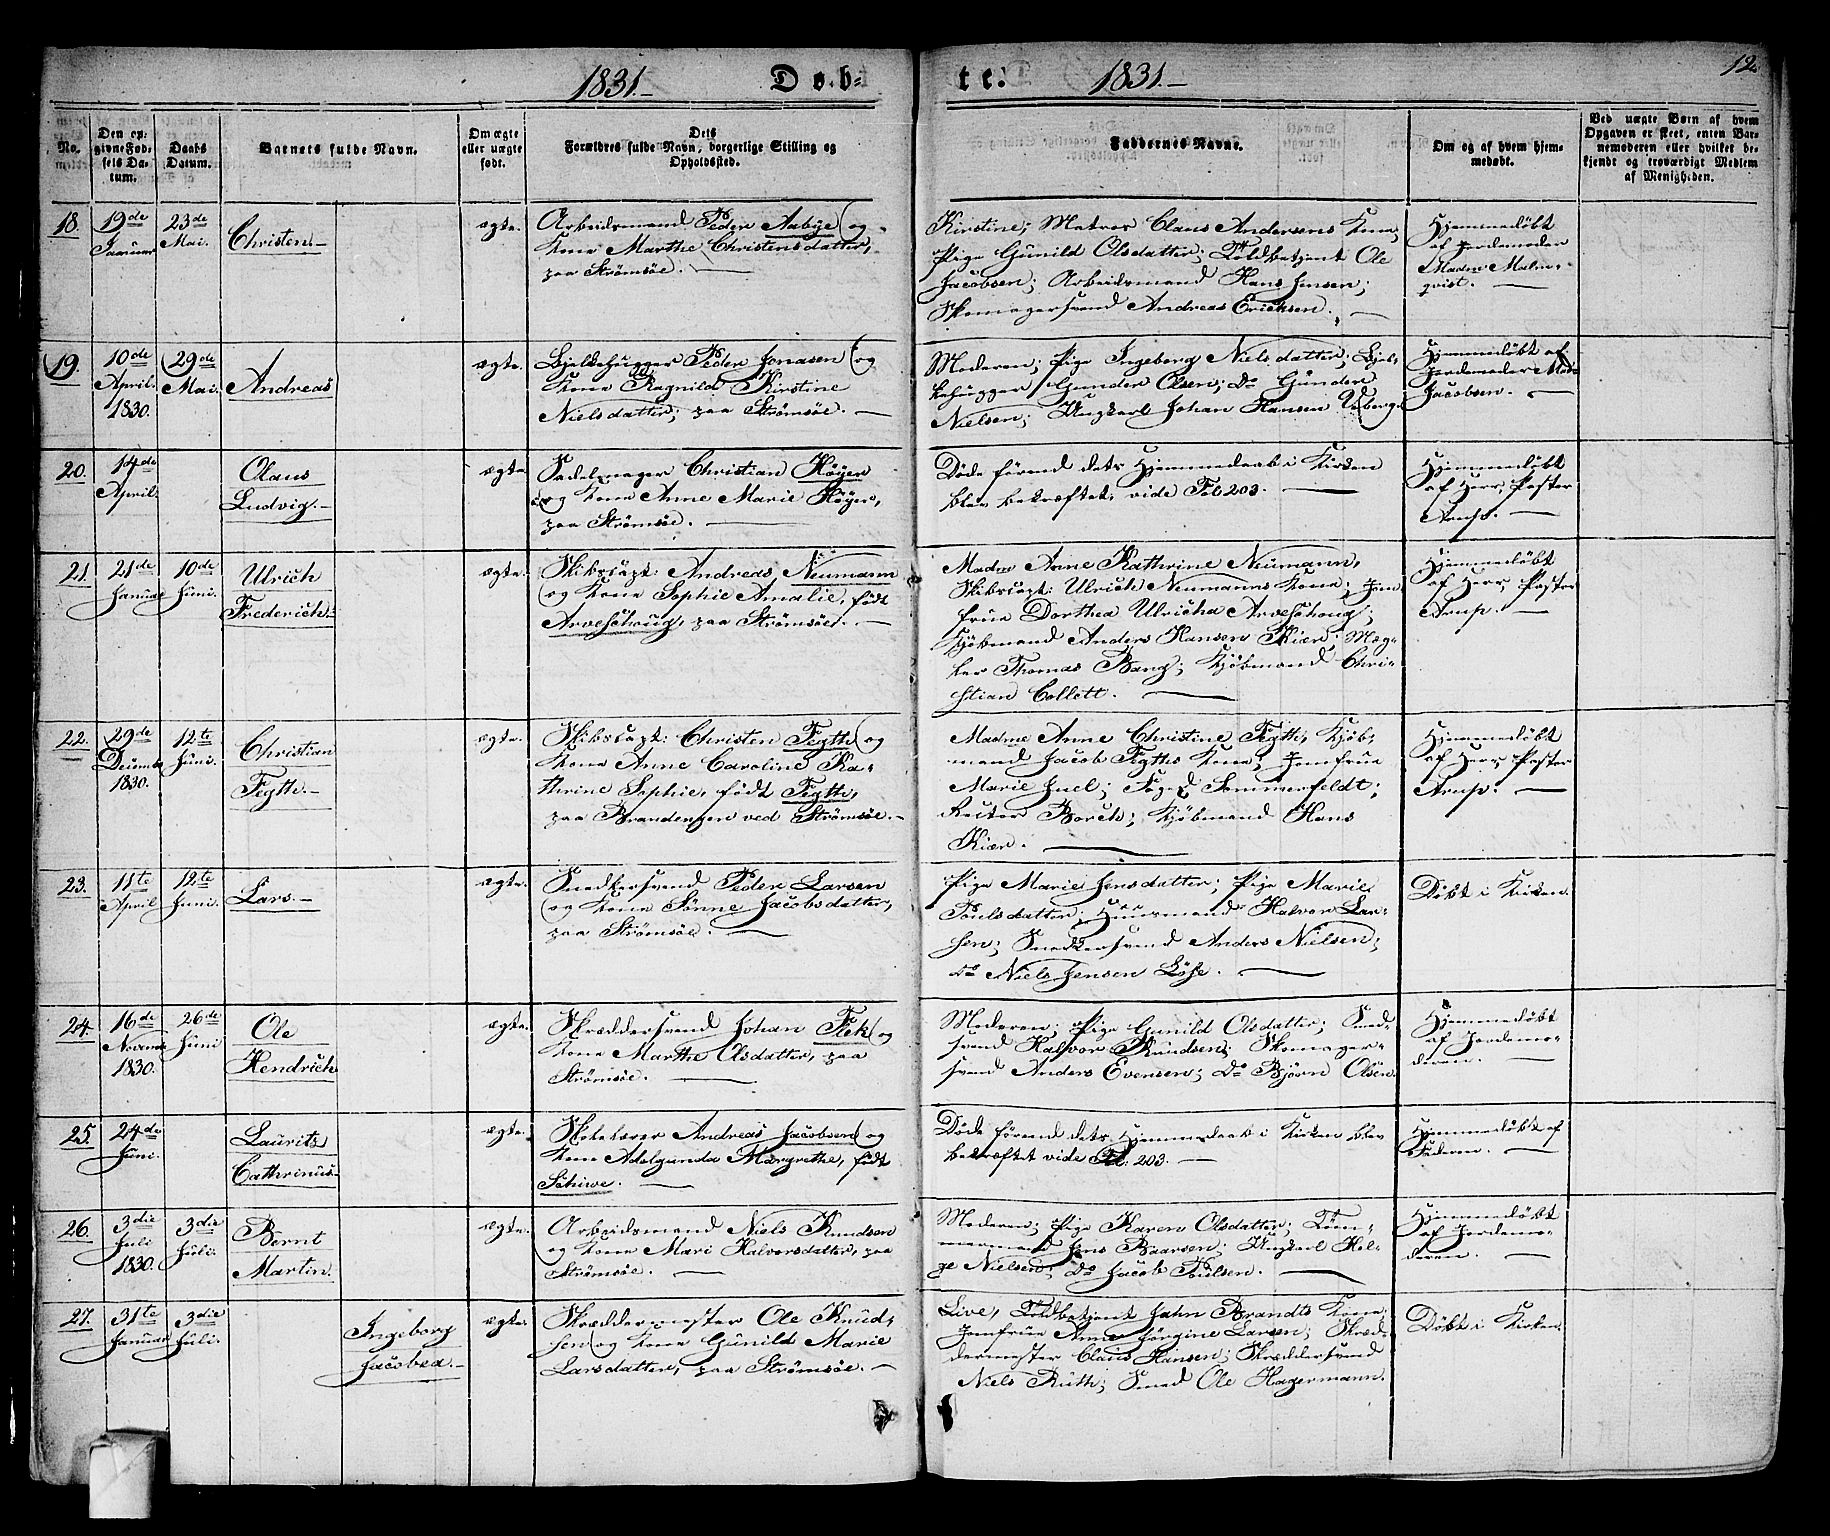 1831.- Døb= te. 1831.- 12.
No.
Den op=
givne Fød=
sels Da=
tum.
Daabs
Datum.
Barnets fulde Navn.
Om ægte
eller uægte
født.
Dets
Forældres fulde Navn, borgerlige Stilling og
Opholdssted.
Faddernes Navne.
Om og af hvem hjem=
medøbt.
Ved uægte Børn af hvem
Opgaven er skeet, enten Bar=
nemoderen eller hvilket be=
kjendt og troværdigt Medlem
af Menigheden.
18.
19de
Januar
23de
Mai.
Christen.-
ægte.
Arbeidsmand Peder Aabye og
Kone Marthe Christensdatter,
paa Strømsøe. -
Kirstine, Matros Claus Andersens Kone,
Pige Gunild Olsdatter; Toldbetjent Ole
Jacobsen; Arbeidsmand Hans Jensen;
Skomagersvend Andreas Ericksen. -
Hjemmedøbt
af Jordemoder
Madm Malm=
qvist. -
19.
10de
April.
1830.
29de
Mai.
Andreas
ægte.
Bjelkehugger Peder Jonasen og
Kone Ragnild Kirstine
Nielsdatter; paa Strømsøe. -
Moderen; Pige Ingeborg Nielsdatter; Bjel=
kehugger Gunder Olsen; Do Gunder
Nielsen; Ungkarl Johan Hansen
Hjemmedøbt af
Jordemoder Mad=
Jacobsen. -
20.
14de
April
Olaus
Ludvig.-
ægte.
Sadelmager Christian Høyer
og Kone Anne Marie Høyer,
paa Strømsøe. -
Døde førend dets Hjemmedaab i Kirken
blev bekræftet, vide Fol 203. -
Hjemmedøbt
af Herr Pastor
Arup. -
21.
21de
Januar
10de
Juni.
Ulrich
Frederich.-
ægte.
Skibscapt: Andreas Neumann
og Kone Sophie Amalie, født
Arveschoug, paa Strømsøe. -
Madm Anne Kathrine Neumann,
Skibscapt: Ulrich Neumanns Kone; Jom=
frue Dorthea Ulricha Arveschoug;
Kjøbmand Anders Hansen Kiær; Mæg=
ler Thomas Bang; Kjøbmand Chri=
stian Collett. -
Hjemmedøbt
af Herr Pastor
Arup. -
22.
29de
Decembr
1830.
12te
Juni.
Christian
Fegth.-
ægte.
Skibscapt: Christen Fegth og
Kone Anne Caroline Ka=
thrine Sophie, født Fegth,
paa Brandengen ved Strømsøe. -
Madme Anne Christine Fegth, Kjøb=
mand Jacob Fegths Kone; Jomfrue
Marie Juel; Foged Sommerfeldt;
Reitor Borch; Kjøbmand Hans
Kiær. -
Hjemmedøbt
af Herr Pastor
Arup. -
23.
11te
April
12te
Juni.
Lars.-
ægte.
Snedkersvend Peder Larsen
og Kone Sønne Jacobsdatter,
paa Strømsøe. -
Pige Marie Jensdatter; Pige Marie
Poulsdatter; Huusmand Halvor Lar=
sen; Snedkersvend Anders Nielsen;
Do Niels Jensen Løse. -
Døbt i Kirken.
24.
16de
Novembr
1830.
26de
Juni
Ole
Hendrich
ægte.
Skræddersvend Johan Fek og
Kone Marthe Olsdatter, paa
Strømsøe. -
Moderen; Pige Gunild Olsdatter; Smed=
svend Halvor Knudsen; Skomager=
svend Anders Evensen; Do Bjørn Olsen.
Hjemmedøbt
af Jordemo=
deren. -
25.
24de
Juni.
Laurits
Cathrinus.-
ægte.
Skolelærer Andreas Jacobsen og
Kone Adelgunda Margrethe, født
Schiwe. -
Døde førend dets Hjemmedaab i Kirken blev
bekræftet vide Fol: 203. -
Hjemmedøbt af
Faderen. -
26.
3die
Juli
1830.
3die
Juli.
Bernt
Martin.
ægte.
Arbeidsmand Niels Knudsen
og Kone Mari Halvorsdatter, paa
Strømsøe. -
Moderen; Pige Karen Olsdatter; Tøm=
mermand Jens Baarsen; Ungkarl Hel=
ge Nielsen; Do Jacob Poulsen. -
Hjemmedøbt
af Jordemo=
deren. -
27.
31te
Januar
3die
Juli.
Ingeborg
Jacobea.-
ægte.
Skræddermester Ole Knud=
sen og Kone Gunild Marie
Larsdatter, paa Strømsøe. -
Live, Toldbetjent Jahn Brandts Kone;
Jomfrue Anne Jørgine Larsen; Skræd=
dermester Claus Hansen; Skræddersvend
Niels Ruth; Smed Ole Hagermann.
Døbt i Kirken.